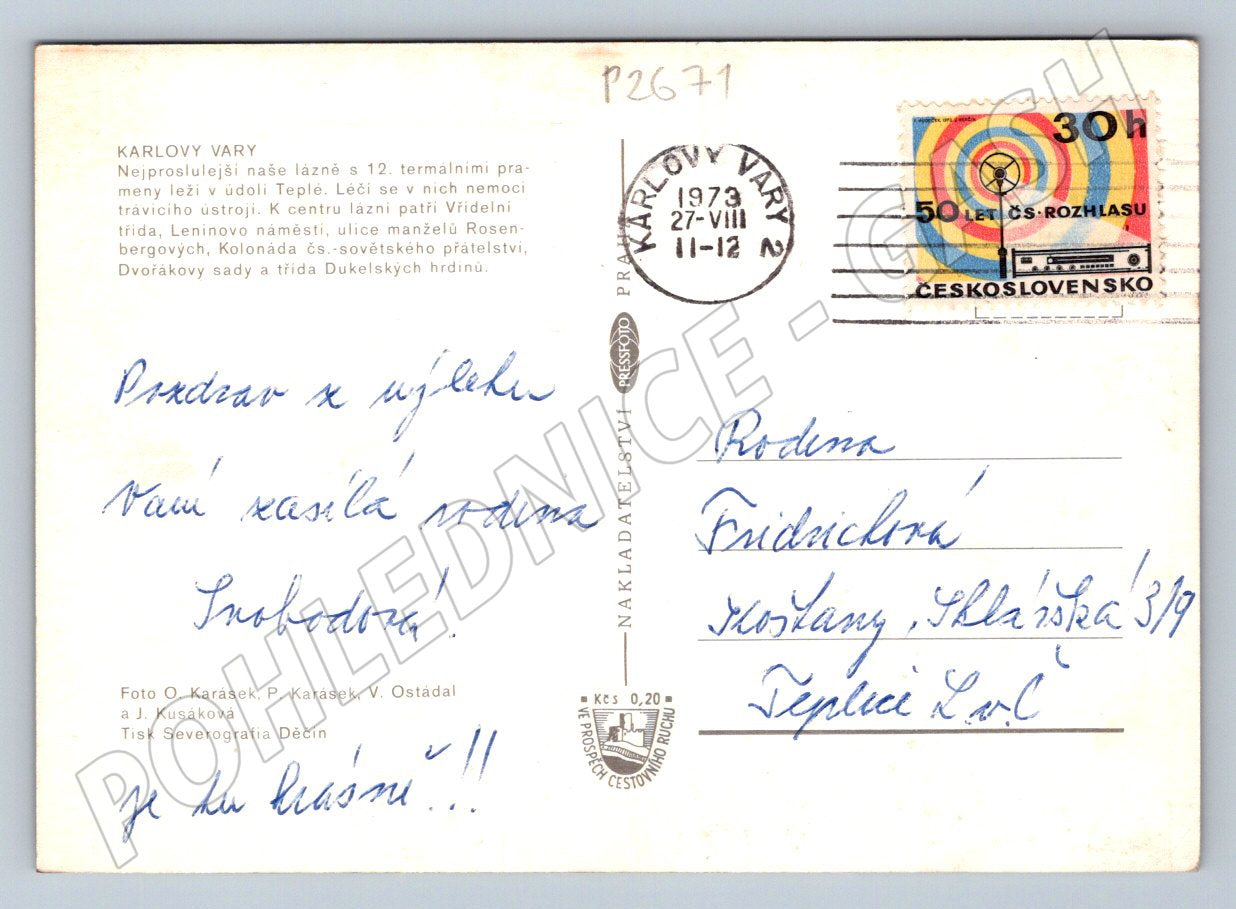 P2671
KARLOVY VARY
Nejproslulejší naše lázně s 12. termálními pra-
meny leží v údolí Teplé. Léčí se v nich nemoci
trávicího ústrojí. K centru lázní patří Vřídelní
třída, Leninovo náměstí, ulice manželů Rosen-
bergových, Kolonáda čs.-sovětského přátelství,
Dvořákovy sady a třída Dukelských hrdinů.
KARLOVY VARY 2
1973
27-VIII
11-12
30h
50 LET ČS. ROZHLASU
ČESKOSLOVENSKO
Pozdrav z výletu
Vám zasílá rodina
Svobodová!
je tu krásně!!
Foto O. Karásek, P. Karásek, V. Ostádal
a J. Kusáková
Tisk Severografia Děčín
NAKLADATELSTVÍ PRESSFOTO PRAHA
Kčs 0,20
VE PROSPĚCH CESTOVNÍHO RUCHU
Rodina
Fridrichová
Košťany, Sklářská 3/9
Teplice L.v.Č
POHLEDNICE - CASH